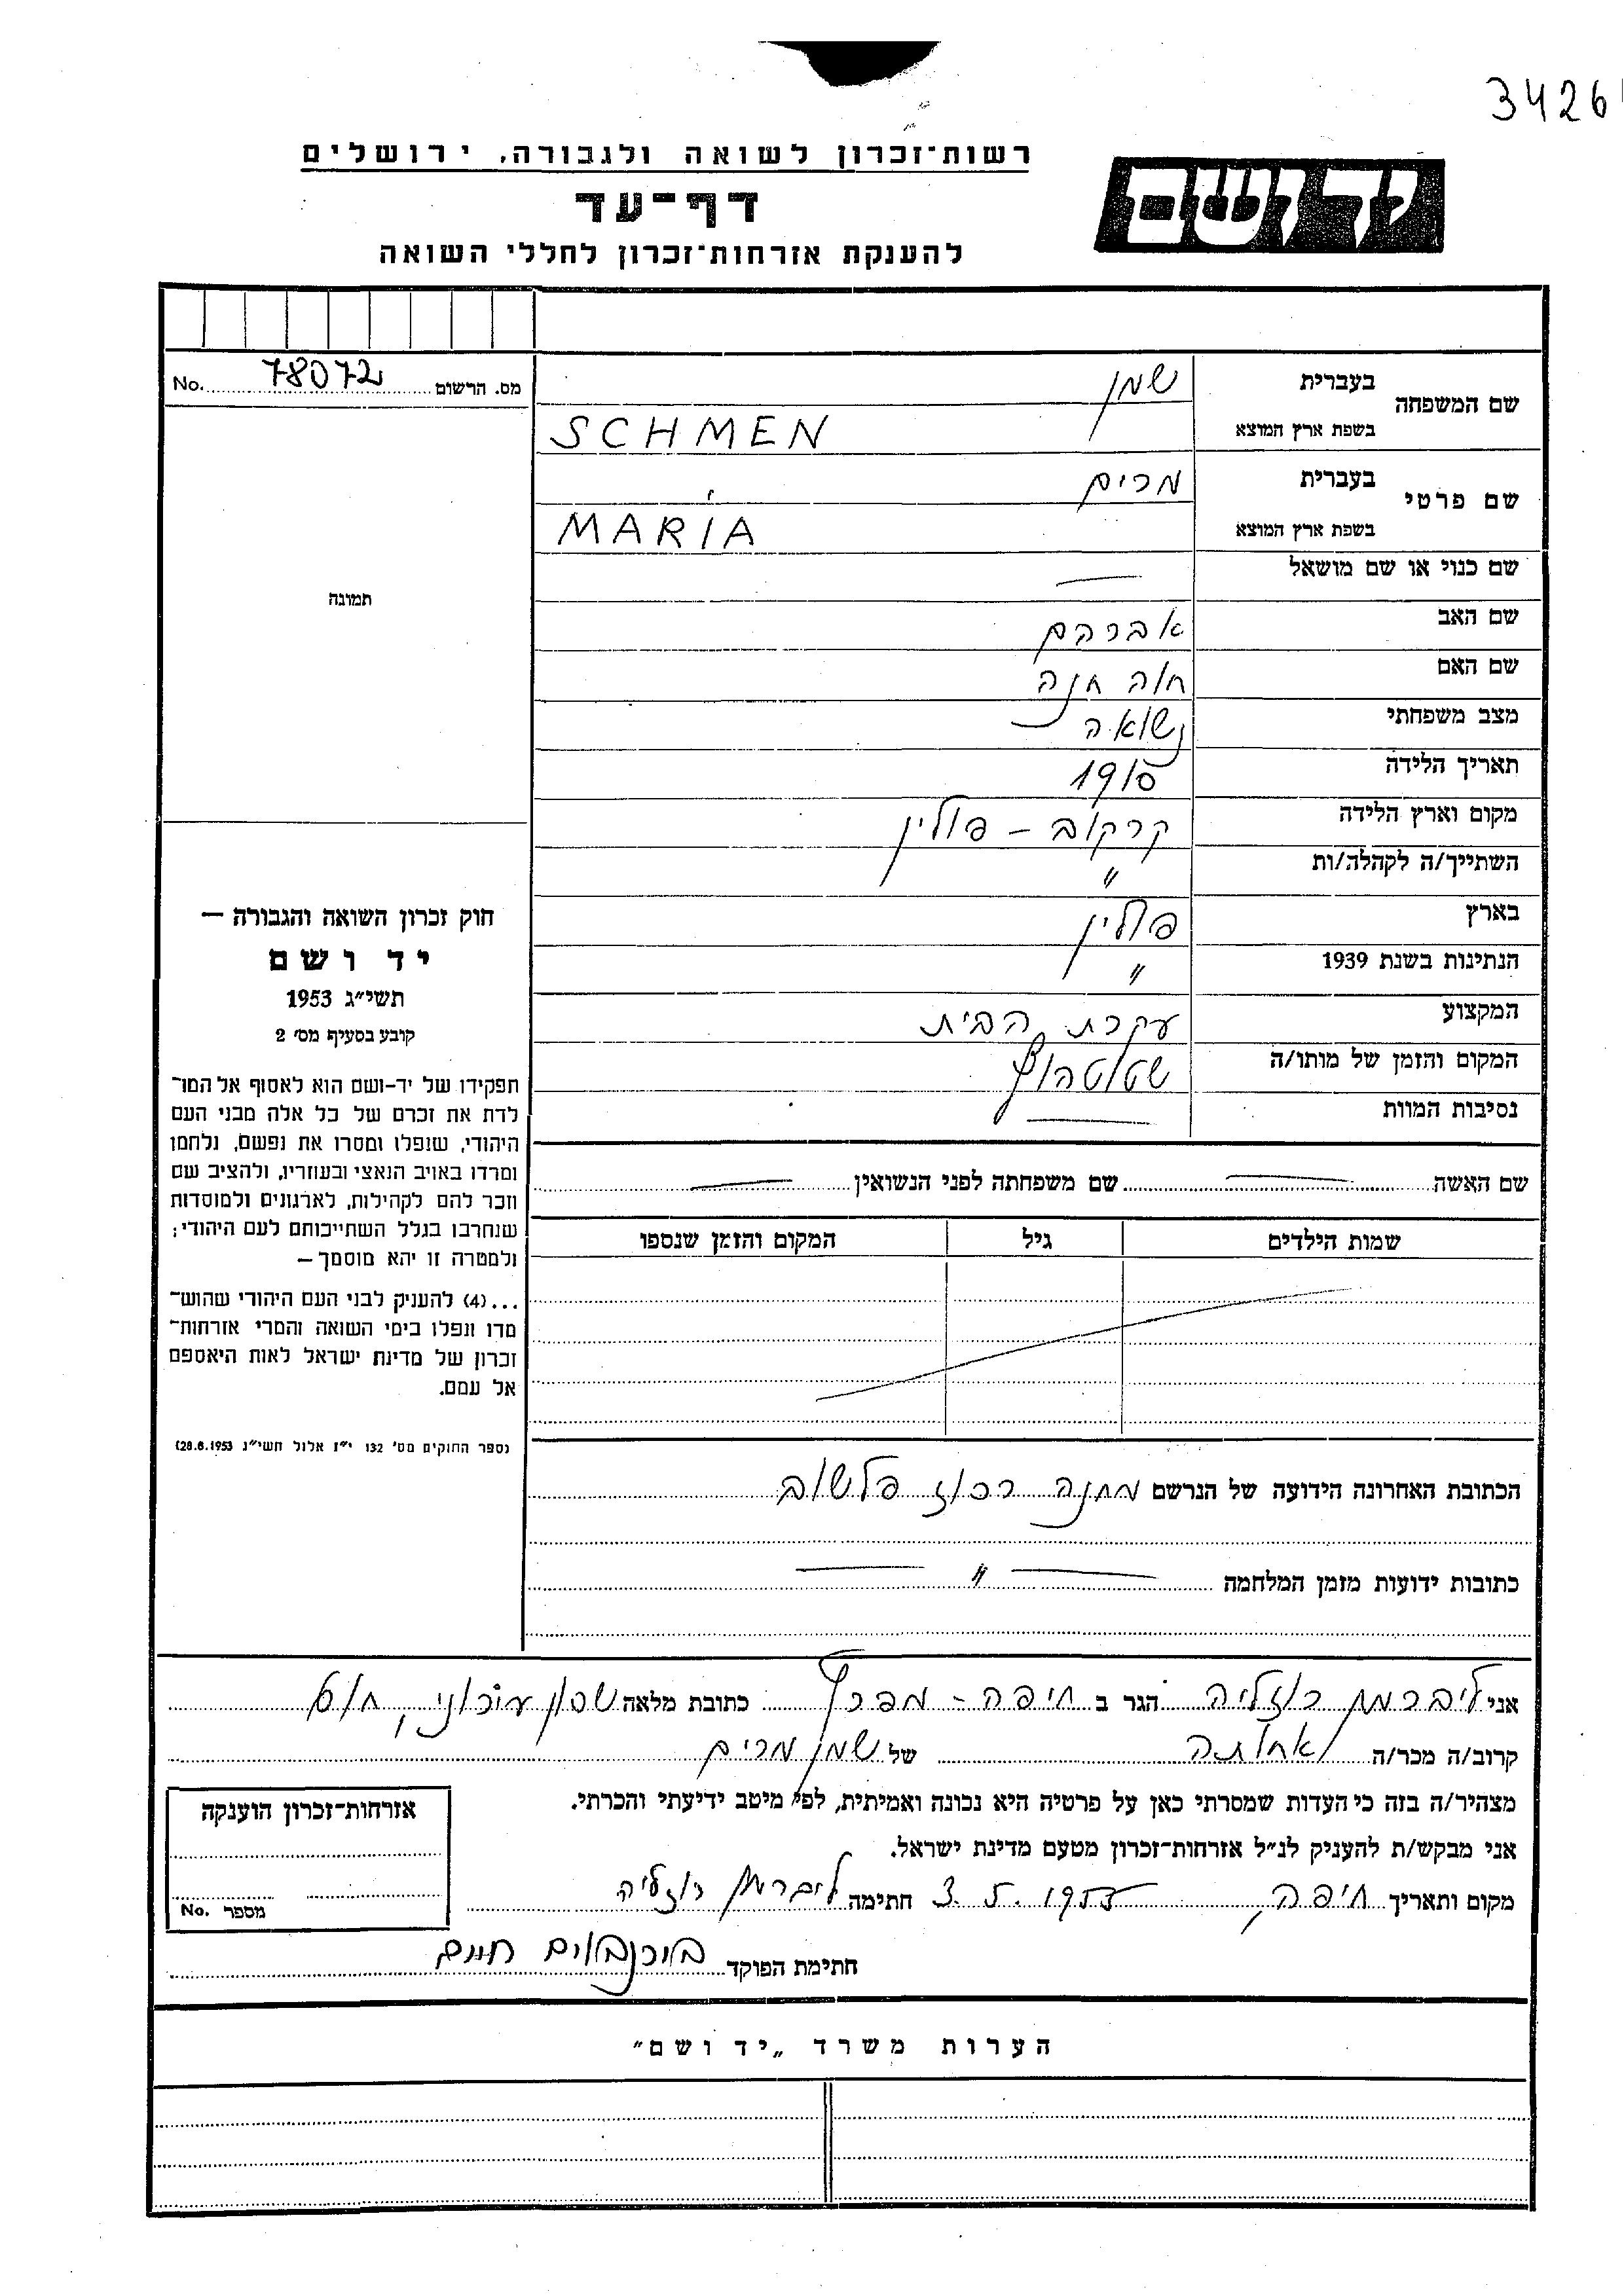 3426
רשות־זכרון לשואה ולגבורה, ירושלים
יד ושם
דף־עד
להענקת אזרחות־זכרון לחללי השואה
מס. הרשום 78072 No.
שם המשפחה
בעברית
שמן
בשפת ארץ המוצא
SCHMEN
שם פרטי
בעברית
מרים
בשפת ארץ המוצא
MARIA
שם כנוי או שם מושאל —
שם האב אברהם
שם האם חוה חנה
מצב משפחתי נשואה
תאריך הלידה 1915
מקום וארץ הלידה קרקוב – פולין
השתייך/ה לקהלה/ות "
בארץ פולין
הנתינות בשנת 1939 "
המקצוע עקרת הבית
המקום והזמן של מותו/ה שטוטהוף
נסיבות המוות —
תמונה
חוק זכרון השואה והגבורה —
יד ושם
תשי״ג 1953
קובע בסעיף מס׳ 2
תפקידו של יד-ושם הוא לאסוף אל המו־
לדת את זכרם של כל אלה מבני העם
היהודי, שנפלו ומסרו את נפשם, נלחמו
ומרדו באויב הנאצי ובעוזריו, ולהציב שם
וזכר להם לקהילות, לארגונים ולמוסדות
שנחרבו בגלל השתייכותם לעם היהודי;
ולמטרה זו יהא מוסמך —
...(4) להעניק לבני העם היהודי שהוש־
מדו ונפלו בימי השואה והמרי אזרחות־
זכרון של מדינת ישראל לאות היאספם
אל עמם.
(ספר החוקים מס׳ 132 י״ז אלול תשי״ג 28.8.1953)
שם האשה — שם משפחתה לפני הנשואין —
שמות הילדים גיל המקום והזמן שנספו
הכתובת האחרונה הידועה של הנרשם מחנה רכוז פלשוב
כתובות ידועות מזמן המלחמה — " —
אני ליברמן רוזליה הגר ב חיפה – מפרץ כתובת מלאה שכון עירוני,
קרוב/ה מכר/ה אחותה של שמן מרים
מצהיר/ה בזה כי העדות שמסרתי כאן על פרטיה היא נכונה ואמיתית, לפי מיטב ידיעתי והכרתי.
אני מבקש/ת להעניק לנ״ל אזרחות־זכרון מטעם מדינת ישראל.
מקום ותאריך חיפה, חתימה ליברמן רוזליה
חתימת הפוקד בירנבוים חיים
אזרחות־זכרון הוענקה
מספר No.
הערות משרד „יד ושם״